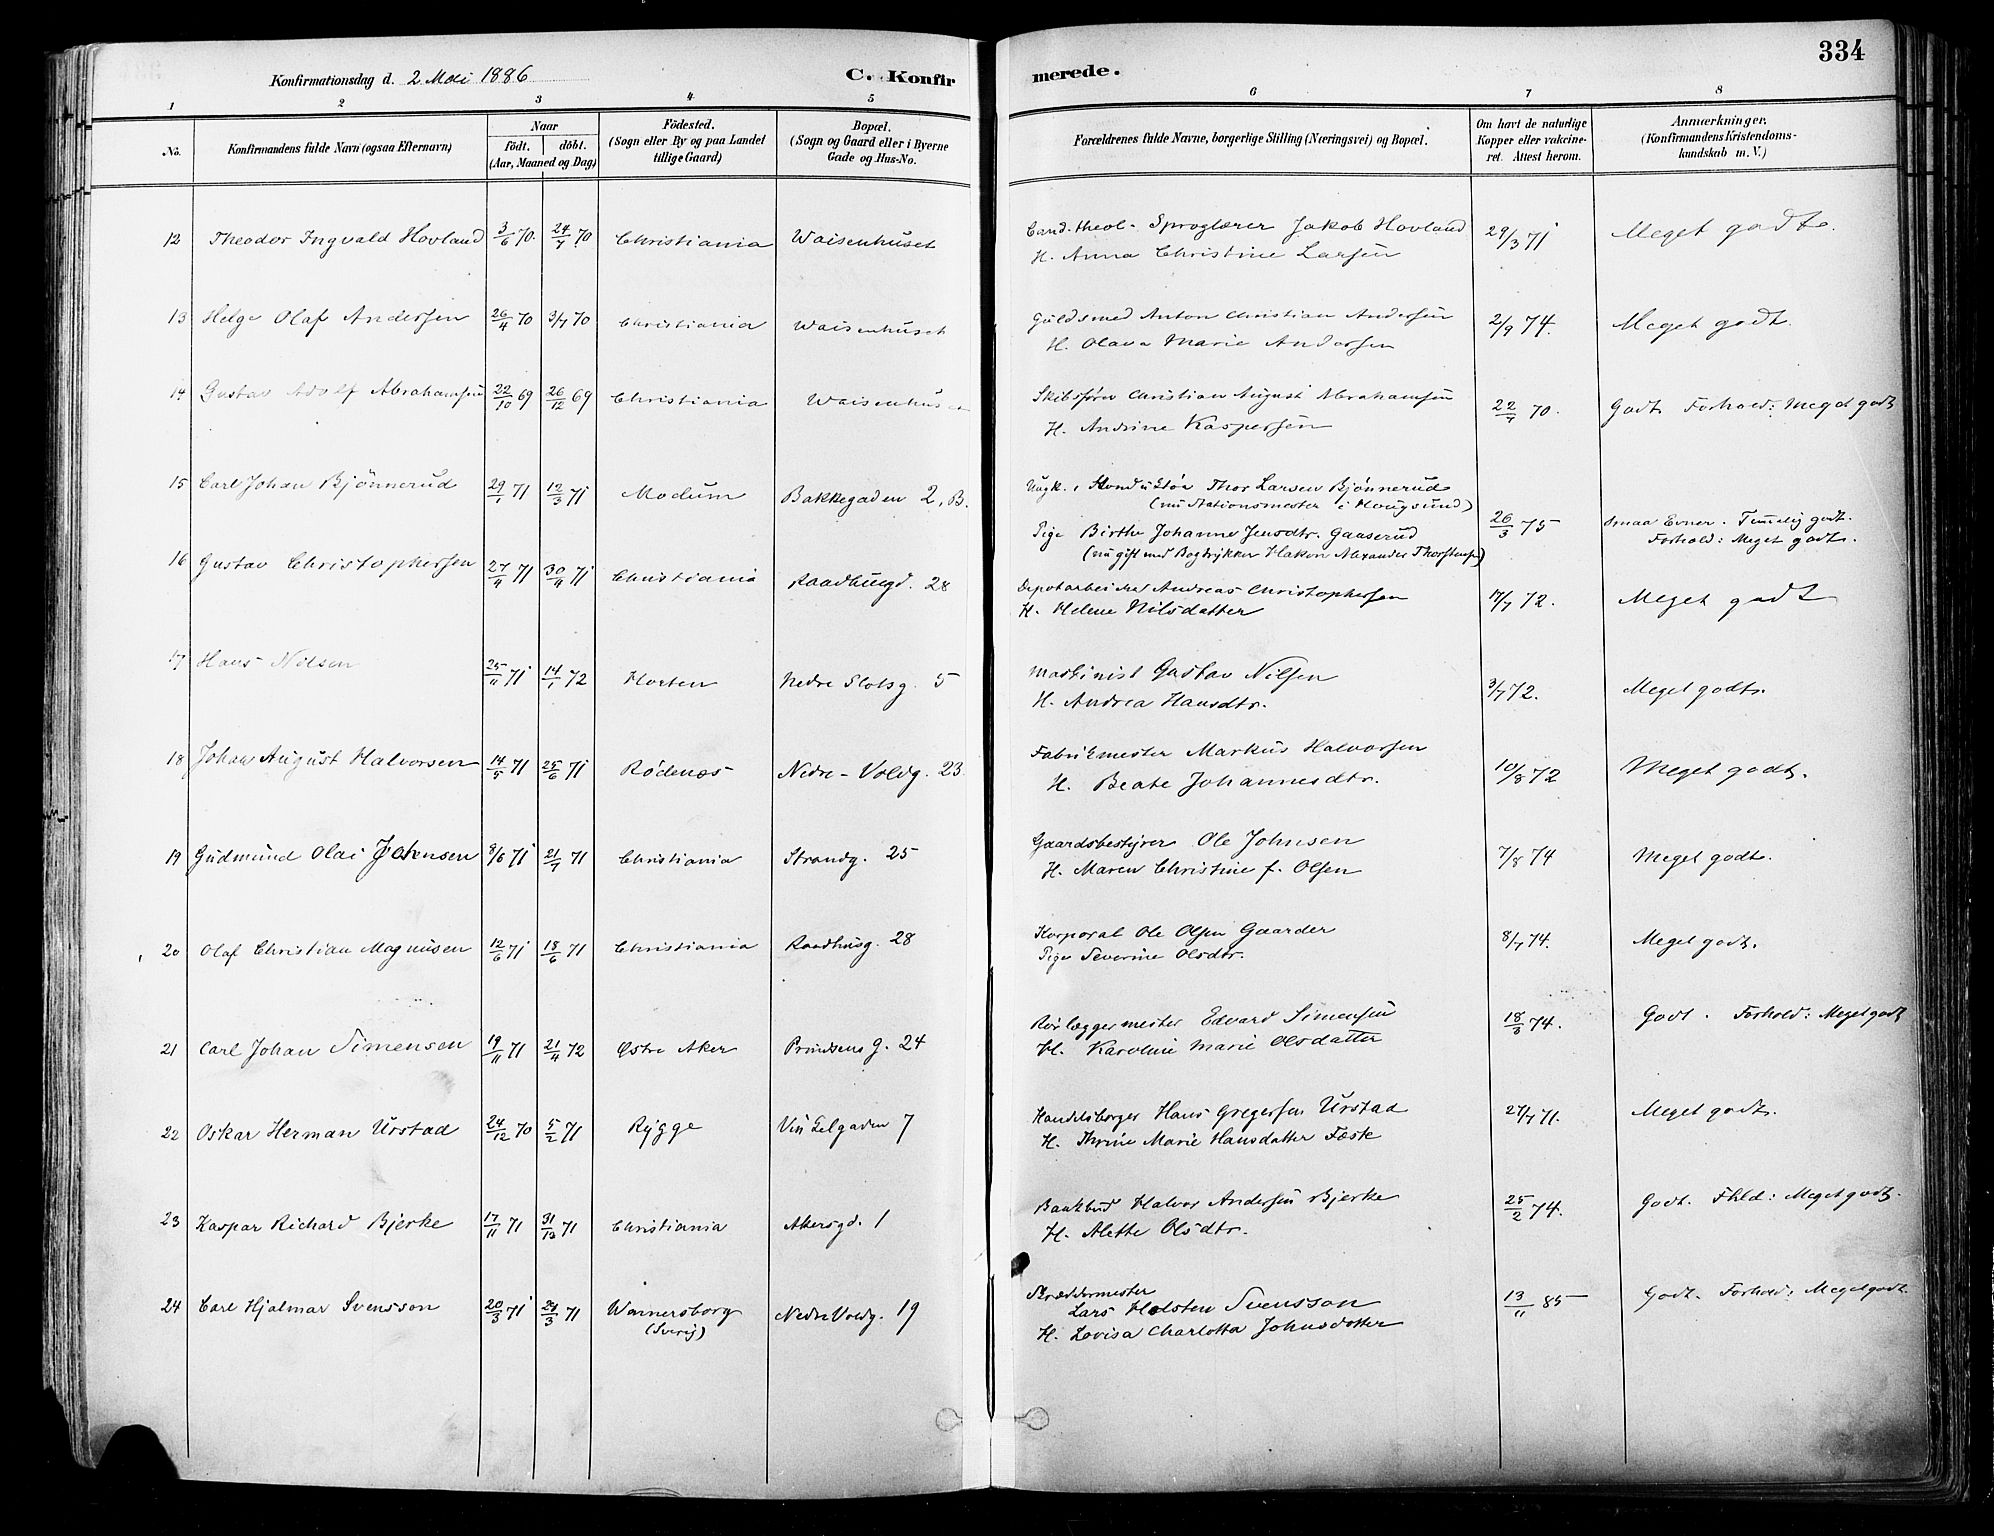 334
Konfirmationsdag d. 2 Mai 1886 C. Konfirmerede.
1 2 3 4 5 6 7 8
No. Konfirmandens fulde Navn (ogsaa Efternavn) Naar födt. döbt. (Aar, Maaned og Dag) Födested. (Sogn eller By og paa Landet tillige Gaard) Bopæl. (Sogn og Gaard eller i Byerne Gade og Hus-No. Forældrenes fulde Navne, borgerlige Stilling (Næringsvei) og Bopæl. Om havt de naturlige Kopper eller vakcineret. Attest herom. Anmærkninger. (Konfirmandens Kristendomskundskab m. V.)
12 Theodor Ingvald Hovland 3/6 70. 24/7 70 Christiania Waisenhuset Cand. theol. Sproglærer Jakob Hovland 29/3 71 Meget godt.
H. Anna Christine Larsen
13 Helge Olaf Andersen 26/4 70 3/7 70 Christiania Waisenhuset Guldsmed Anton Christian Andersen 2/9 74. Meget godt.
H. Olava Marie Andersen
14 Gustav Adolf Abrahamsen 22/10 69 26/12 69 Christiania Waisenhuset Skibsfører Christian August Abrahamsen 22/7 70. Godt Forhold: Meget godt
H. Andrine Kaspersen
15 Carl Johan Bjönnerud 29/1 71 12/3 71 Modum Bakkegaden 2, B. Ungk. Konduktör Thor Larsen Bjönnerud
(nu Stationsmester i Hougsund)
Pige Birthe Johanne Jensdtr. Gaaserud 26/3 75 Smaa Evner. Temelig godt.
(nu gift med Bogtrykker Hakon Alexander Thorstensen) Forhold: Meget godt.
16 Gustav Christophersen 27/9 71 30/11 71 Christiania Raadhusgd. 28 Depotarbeider Andreas Christophersen 17/7 72. Meget godt
H. Helene Nilsdatter
17 Hans Nilsen 25/11 71 14/1 72 Horten Nedre Slotsg. 5 Maskinist Gustav Nilsen 3/7 72. Meget godt.
H. Andrea Hansdtr.
18 Johan August Halvorsen 14/5 71 25/6 71 Rödenæs Nedre-Voldg. 23 Fabrikmester Markus Halvorsen 10/8 72 Meget godt.
H. Beate Johannesdtr.
19 Gudmund Olai Johnsen 8/6 71 21/7 71 Christiania Strandg. 25 Gaardsbestyrer Ole Johnsen 7/8 74 Meget godt.
H. Maren Christine f. Olsen
20 Olaf Christian Magnusen 12/6 71 18/6 71 Christiania Raadhusg. 28 Korporal Ole Olsen Gaarder 8/7 74. Meget godt.
Pige Severine Olsdtr.
21 Carl Johan Simensen 19/11 71 21/4 72 Östre Aker Prindsens g. 24 Rörlæggermester Edvard Simensen 18/3 74. Godt. Forhold: Meget godt
H. Karoline Marie Olsdatter
22 Oskar Herman Urstad 24/12 70 5/2 71 Rygge Vinkelgaden 7 Handelsborger Hans Gregersen Urstad 27/7 71. Meget godt.
H. Thrine Marie Hansdatter Fæste
23 Kaspar Richard Bjerke 17/11 71 31/12 71 Christiania Akersgd. 1 Bankbud Halvor Andersen Bjerke 25/2 74. Godt. Fhld: Meget godt.
H. Alette Olsdtr.
24 Carl Hjalmar Svensson 20/3 71 29/3 71 Wannersborg (Sverig) Nedre Voldg. 19 Skræddermester
Lars Holsten Svensson 13/11 85 Godt. Forhold: Meget godt.
H. Lovisa Charlotta Johnsdotter